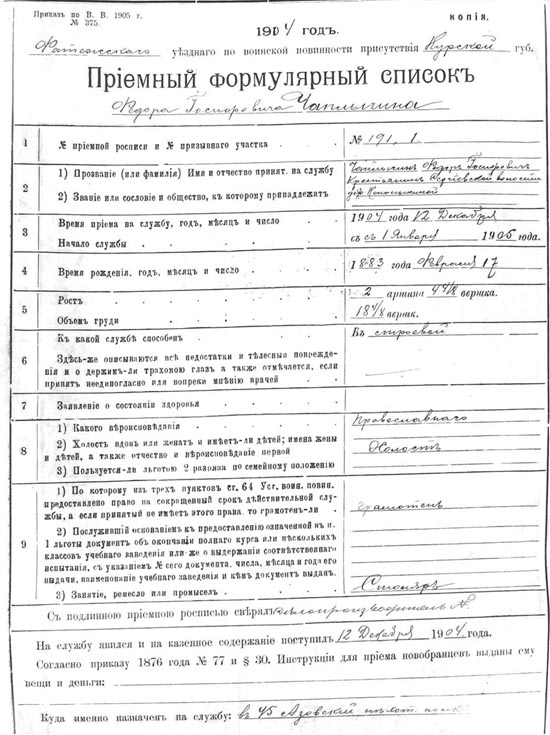 Приказъ по В. В. 1905 г.
№ 375.
КОПІЯ.
1904 годъ.
Фатежскаго уѣзднаго по воинской повинности присутствія Курской губ.
Пріемный формулярный списокъ
Ѳедора Чаплыгина
1
№ пріемной росписи и № призывнаго участка
№ 191, 1.
2
1) Прозваніе (или фамилія) Имя и отчество принят. на службу
2) Званіе или сословіе и общество, къ которому принадлежитъ
Чаплыгин Ѳедоръ
Крестьянинъ Сергіевской волости
дер.
3
Время пріема на службу, годъ, мѣсяцъ и число
Начало службы
1904 года 12 Декабря
съ съ 1 Января 1905 года.
4
Время рожденія, годъ, мѣсяцъ и число
1883 года Февраля 17
5
Ростъ
Объемъ груди
2 аршина 4 4/8 вершка.
18 4/8 вершк.
6
Къ какой службѣ способенъ
Здѣсь-же описываются всѣ недостатки и тѣлесныя поврежде-
нія и о держимъ-ли трахомою глазъ а также отмѣчается, если
принятъ неединогласно или вопреки мнѣнію врачей
Къ строевой
7
Заявленіе о состояніи здоровья
8
1) Какого вѣроисповѣданія
2) Холостъ вдовъ или женатъ и имѣетъ-ли дѣтей; имена жены
и дѣтей, а также отчество и вѣроисповѣданіе первой
3) Пользуется-ли льготою 2 разряда по семейному положенію
Православнаго
Холостъ
9
1) По которому изъ трехъ пунктовъ ст. 64 Уст. воин. повин.
предоставлено право на сокращенный срокъ дѣйствительной слу-
жбы, а если принятый не имѣетъ этого права, то грамотенъ-ли
2) Послужившій основаніемъ къ предоставленію означенной въ п.
1 льготы документъ объ окончаніи полнаго курса или нѣсколькихъ
классовъ учебнаго заведенія или-же о выдержаніи соотвѣтственнаго
испытанія, съ указаніемъ № сего документа, числа, мѣсяца и года его
выдачи, наименованіе учебнаго заведенія и кѣмъ документъ выданъ.
3) Занятіе, ремесло или промыселъ
Грамотенъ
Столяръ
Съ подлинною пріемною росписью свѣрялъ дѣлопроизводитель
На службу явился и на казенное содержаніе поступилъ 12 Декабря 1904 года.
Согласно приказу 1876 года № 77 и § 30. Инструкціи для пріема новобранцевъ выданы ему
вещи и деньги:
Куда именно назначенъ на службу: въ 45 Азовскій пѣхот. полкъ